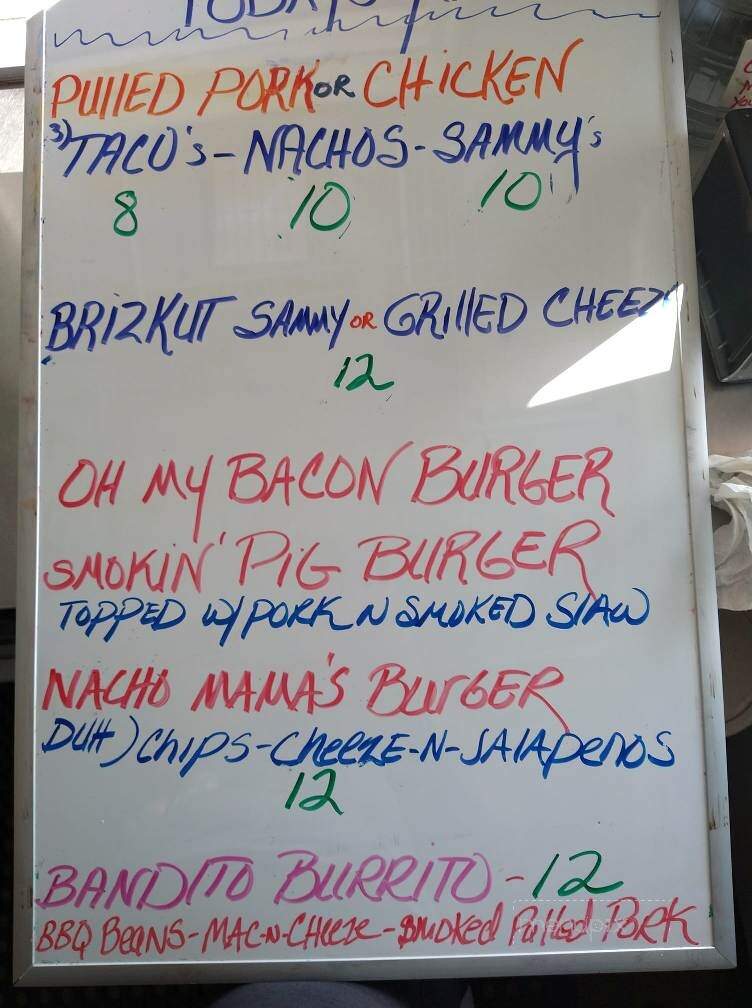 TODAY'S
PUllED PORK OR CHiCKEN
3) TACO's - NACHOS - SAMMY's
8 10 10
BRiZKUT SAMMY OR GRillED CHEEZY
12
OH MY BACON BURGER
SMOKiN' PiG BURGER
TOPPED W/PORK N SMOKED SlAW
NACHO MAMA'S BURGER
DUH) CHiPS-CHeeZE-N-JAlApeNOS
12
BANDITO BURRITO - 12
BBQ BeaNS-MAC-N-CHeeZe-SMOKed Pulled PORK